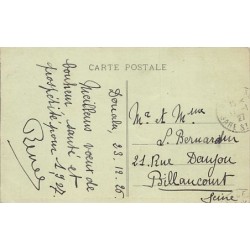 CARTE POSTALE
Douala, 23.12.26
Meilleurs vœux de
bonheur santé et
prospérité pour 1927.
René
Mr & Mme
L. Bernardin
21. Rue Danjou
Billancourt
Seine
27